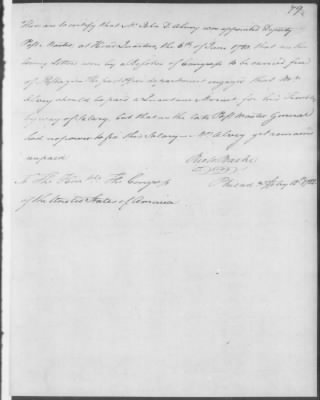 79.
These are to certify that Mr. John D. Alvey was appointed Deputy
Post Master at Head Quarters, the 6th of June 1780, that as
Letters were by a Resolve of Congress to be carried free
of Postage in the post Office department engaged that Mr
Alvey should be paid a Lieutenants for his Trouble
by way of Salary, but that as the late Post Master General
had no power to fix this Salary Mr Alvey yet remains
unpaid
Richd Bache
Philad 12th 1782
To The Honble The Congress
of the United States of America